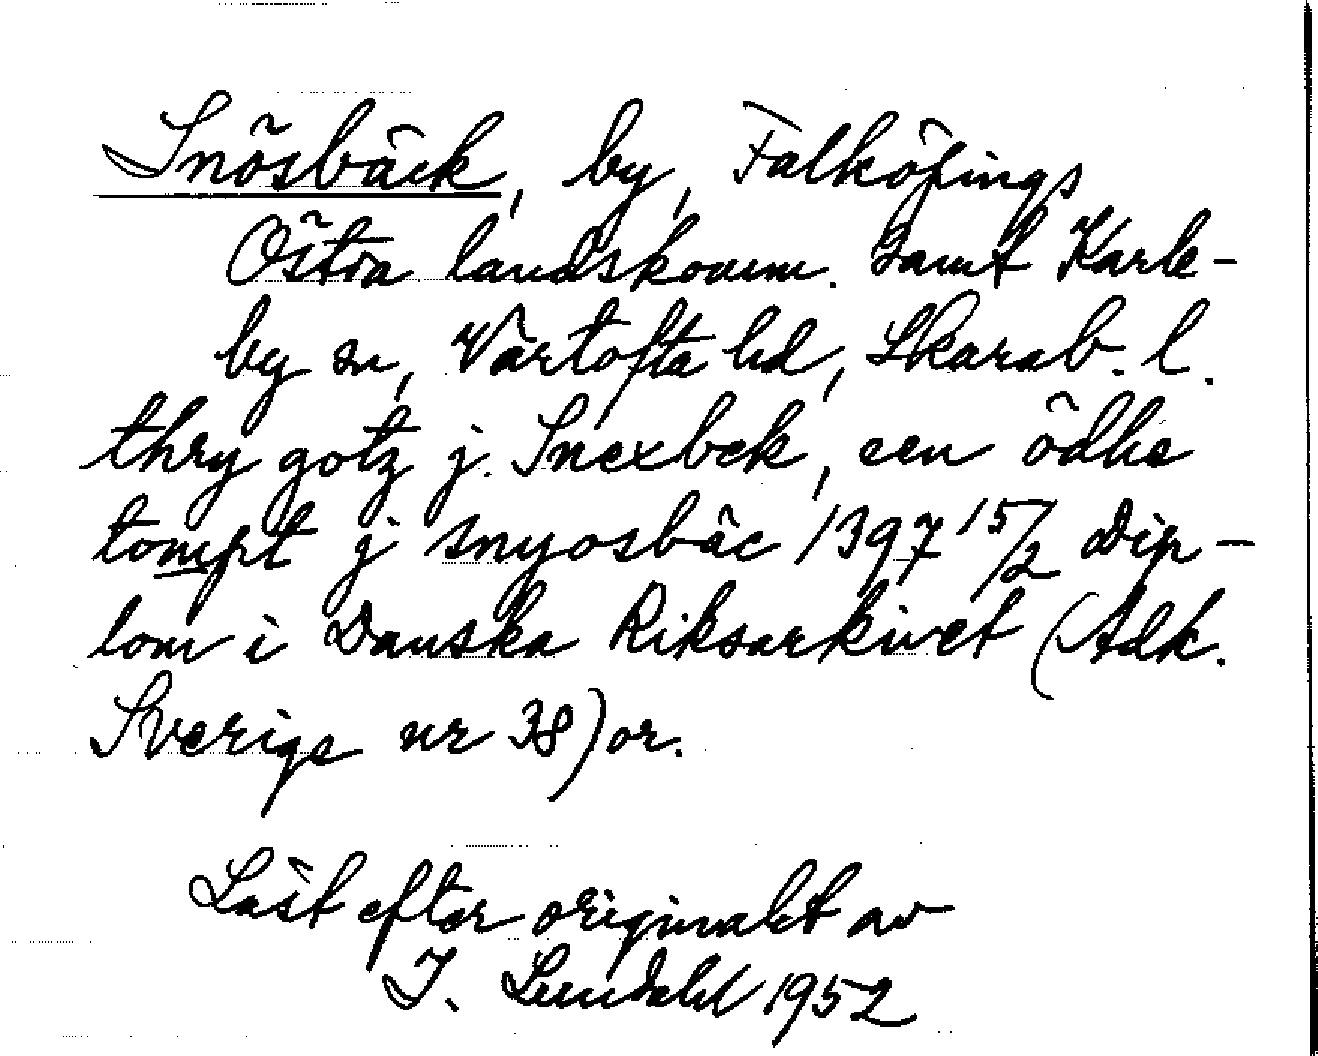 Snösbäck, by, Falköpings
Östra landskomm. Samt Karle-
by sn, Vartofta hd, Skarab. l.
thry gotz j Snexbek, een ödhe
tompt j snyosbäc 1397 15/2 Dip-
lom i Danska Riksarkivet (Adk.
Sverige nr 38) or.
Läst efter originalet av
I. Lundahl 1952